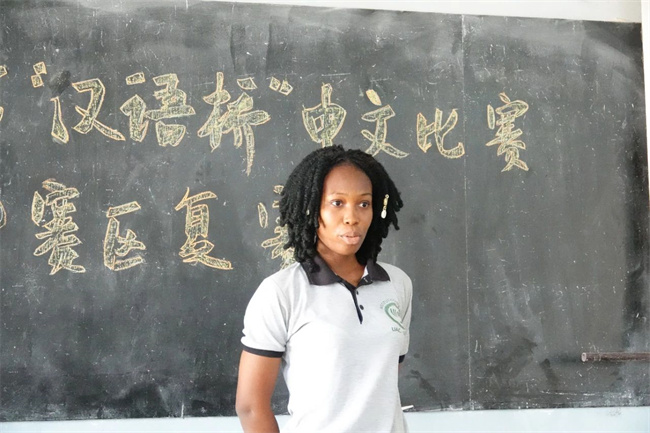 “汉语桥”中文比赛
赛区复赛